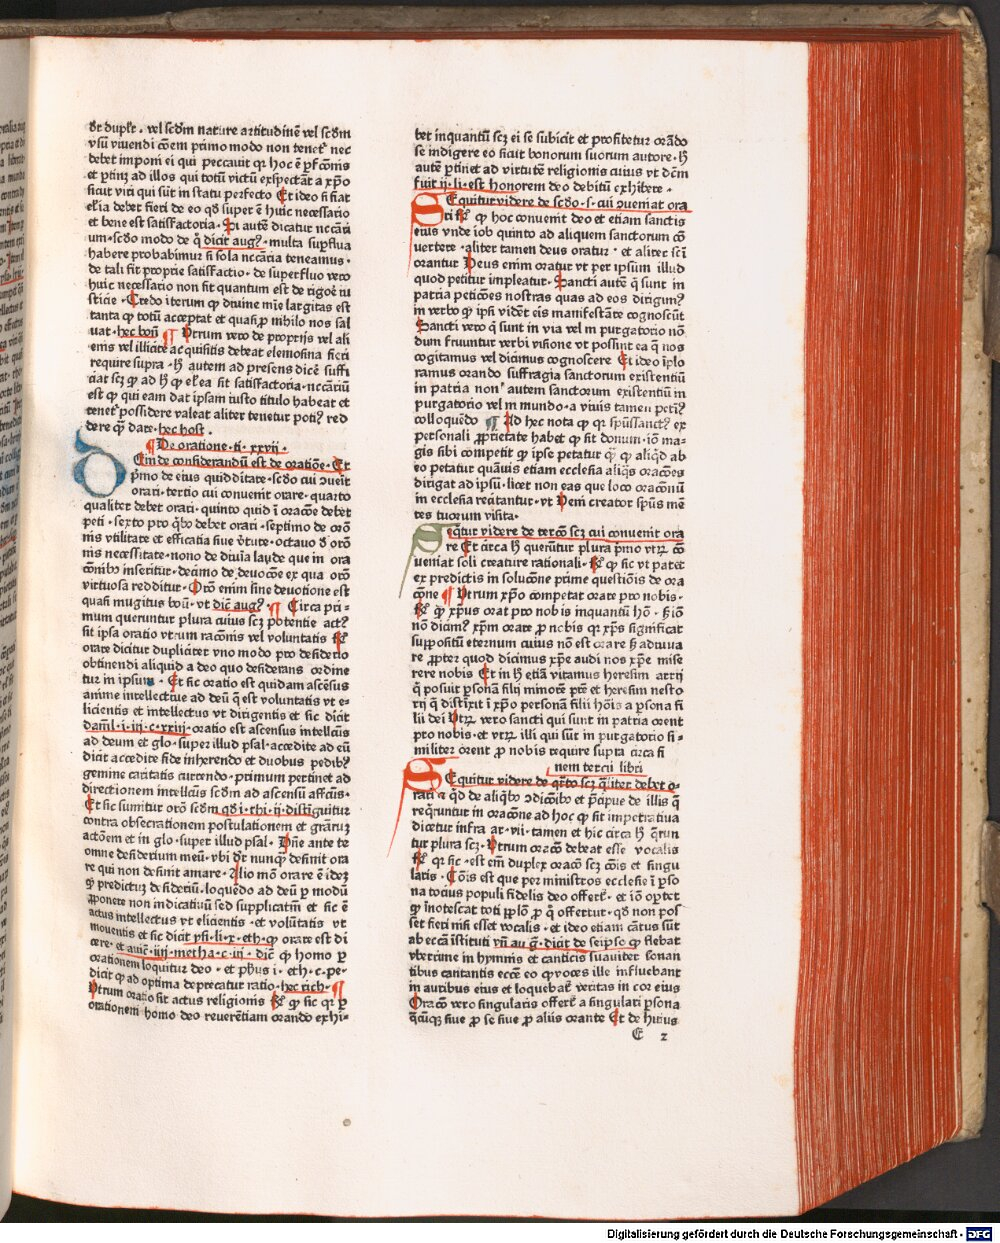 dr̄ duplr̄. vel scd̄m nature artitudinē vel scd̄m
vsū viuendi cōem primo modo non tenet᷑ nec
debet imponi ei qui peccauit qꝛ hoc ē ꝑfc̄ōnis
et ꝑtinꝫ ad illos qui totū victū expectāt a xp̄o
sicut viri qui sūt in statu perfecto Et ideo si fiat
el̄ia debet fieri de eo qd̄ super ē huic necessario
et bene est satisfactoria. Si autē dicatur nccāri
um. scd̄o modo de q̄ dicit aug᷒. multa suꝑflua
habere probabimur si sola nccāria teneamus.
de tali fit proprie satisfactio. de superfluo vero
huic necessario non fit quantum est de rigoꝛe iu
sticie. Credo iterum ꝙ diuine mīe largitas est
tanta ꝙ totū acceptat et quasi ꝓ nihilo nos sal
uat. hec bon̄ ¶ Vtrum vero de proprijs vel ali
enis vel illicite acquisitis debeat elemosina fieri
require supra. h̄ autem ad presens dicē suffi
ciat scꝫ ꝙ ad h̄ ꝙ el̄ea sit satisfactoria. nccāriū
est ꝙ qui eam dat ipsam iusto titulo habeat et
tenet᷑ possidere valeat aliter tenetur poti᷒ red
dere qȝ dare. hec host.
¶ De oratione. ti. xxvij.
Dein de considerandū est de oratiōe. Et
pͥmo de eius quidditate. scd̄o cui ↄueīt
orari. tertio cui conuenit orare. quarto
qualiter debet orari. quinto quid ī orac̄oe debet
peti. sexto pro qͥbo debet orari. septimo de orō
nis vtilitate et efficatia siue v̄tute. octauo d̄ orō
nis necessitate. nono de diuīa laude que in ora
cōnibo inseritur. decimo de deuoc̄oe ex qua orō
virtuosa redditur. Orō enim sine deuotione est
quasi mugitus boū. vt dic̄ aug᷒. ¶ Circa pri-
mum queruntur plura cuius scꝫ potentie act᷒
sit ipsa oratio vtrum rac̄onis vel voluntatis R̄
orare dicitur dupliciter vno modo pro desiderio
obtinendi aliquid a deo quo desiderans ordine
tur in ipsum. Et sic oratio est quidam ascēsus
anime intellectiue ad deū q̄ est voluntatis vt e-
licientis et intellectus vt dirigentis et sic dicit
damī. l. iij. c. xxiij. oratio est ascensus intellcūs
ad deum et glo. super illud psal. accedite ad eū
dicit accedite fide inherendo et duobus pedibꝰ
gemine caritatis currendo. primum pertinet ad
directionem intellcūs scd̄m ad ascensū affcūs.
Et sic sumitur orō scd̄m qd̄ i. thi. ij. distīguitur
contra obsecrationem postulationem et gr̄arꝝ
actōem et in glo. super illud psal. Dn̄e ante te
omne desiderium meū. vbi dr̄ nunqȝ desinit ora
re qui non desinit amare. Alio mō orare ē ideꝫ
qꝫ predictuꝫ desideriū. loquēdo ad deū ꝑ modū
ꝓponere non indicatiuū sed supplicatīm et sic ē
actus intellectus vt elicientis. et volūtatis vt
mouentis et sic dicit ysi. li. x. eth. ꝙ orare est di
cere. et auic̄. iiij. metha. c. iij. dic̄ ꝙ homo ꝑ
orationem loquitur deo. et ph̄us i. eth. c. pe.
dicit ꝙ ad optima deprecatur ratio. hec rich. ¶
Vtrum oratio sit actus religionis R̄ ꝙ sic qꝛ ꝑ
orationem homo deo reuerētiam orando exhi-
bet inquantū scꝫ ei se subicit et profitetur orādo
se indigere eo sicut bonorum suorum autore. h̄
autē ꝑtinet ad virtutē religionis cuius vt dc̄m
fuit ij. li. est honorem deo debitū exhibere.
Sequitur videre de scd̄o. s. cui ↄueniat ora
ri R̄ ꝙ hoc conuenit deo et etiam sanctis
eius vnde iob quinto ad aliquem sanctorum cō
uertere. aliter tamen deus oratur. et aliter sc̄i
orantur Deus enim oratur vt per ipsum illud
quod petitur impleatur. Sancti autē q̄ sunt in
patria petic̄oes nostras quas ad eos dirigim᷒
in verbo qꝫ ipsi videt eis manifestāte cognoscūt
Sancti vero q̄ sunt in via vel in purgatorio nō
dum fruuntur verbi visione vt possint ea q̄ nos
cogitamus vel dicimus cognoscere Et ideo īplo
ramus orando suffragia sanctorum existentiū
in patria non᷒ autem sanctorum existentium in
purgatorio vel in mundo. a viuis tamen peti᷒
colloquēdo ¶ Ad hec nota ꝙ qꝛ spūssanct᷒ ex
personali ꝓprietate habet ꝙ sit donum. iō ma-
gis sibi competit ꝙ ipse petatur qȝ ꝙ aliqd̄ ab
eo petatur quāuis etiam ecclesia aliqͣs orac̄oes
dirigat ad ipsū. licet non eas que loco orac̄onū
in ecclesia recitantur. vt Veni creator spūs mē
tes tuorum visita.
Seqͥtur videre de terc̄o scꝫ cui conuenit ora
re Et circa h̄ querūtur plura pͥmo vtrꝝ cō
ueniat soli creature rationali. R̄ ꝙ sic vt patet
ex predictis in soluc̄one prime questiōis de ora
cōne ¶ Vtrum xp̄o competat orare pro nobis.
R̄ ꝙ xp̄us orat pro nobis inquantū hō. s̄ iō
nō dicim᷒ xp̄m orare ꝓ nobis qꝛ xp̄s significat
suppositū eternum cuius nō est orare s̄ adiuua
re ꝓpter quod dicimus xp̄e audi nos xp̄e mise
rere nobis Et in h̄ etiā vitamus heresim arrij
q̄ posuit ꝑsonā filij minorē pr̄e et heresim nesto
rij q̄ distīxit ī xp̄o personā filij hōis a ꝑsona fi
lii dei Vtrꝝ vero sancti qui sunt in patria orent
pro nobis. et vtrꝝ illi qui sūt in purgatorio si-
militer orent ꝓ nobis require supra circa fi
nem tercij libri
Sequitur videre de qͣrto scꝫ qͣliter debet o-
rari et qͥd de aliqͥbo ↄdic̄oibo et p̄cipue de illis q̄
reqͥruntur in orac̄one ad hoc ꝙ sit impetratiua
dicetur infra ar. vij. tamen et hic circa h̄ q̄run
tur plura scꝫ. Vtrum orac̄o debeat esse vocalis
R̄ qꝛ sic. est em̄ duplex orac̄o scꝫ cōis et singu
laris. Cōis est que per ministros ecclesie ī ꝑso
na tocius populi fidelis deo offertr̄. et iō oꝑtet
ꝙ īnotescat toti ꝓplō ꝓ q̄ offertur. qd̄ non pos
set fieri nisi esset vocalis. et ideo etiam cātus sūt
ab eccā īstituti vn̄ au g᷒. dicit de seipso ꝙ flebat
vbertime in hymnis et canticis suauiter sonan
tibus cantantis eccē eo ꝙ voces ille influebant
in auribus eius et loquebat᷑ veritas in cor eius
Orac̄o vero singularis offert᷑ a singulari ꝑsona
q̄cūqꝫ siue ꝓ se siue ꝓ aliis orante Et de huius
E 2
Digitalisierung gefördert durch die Deutsche Forschungsgemeinschaft - DFG